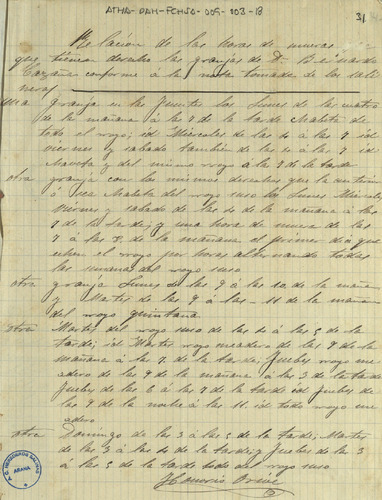 ATHA-DAH-FCHSA-009-003-18
31
Relacion de las horas de mueras
que tiene derecho las granjas de D. Bernardo
conforme á la nota tomada de los sali
neros
Una granja en la fuentes los Lunes de las cuatro
de la mañana á las 7 de la tarde Maleta de
todo el royo; id Miercoles de las 4 á las 7 id
viernes y sabado tambien de las 4 á las 7 id
y del mismo royo á las 3 de la tarde
otra granja con los mismos derechos que la anterior
ó sea Maleta del royo suso los Lunes Miercoles
viernes, y sabado de las 4 de la mañana á las
7 de la tarde; y una hora de muera de las
7 á las 8 de la mañana el primer dia que
echen el royo por horas alternando todas
las semanas del royo suso
otra granja Lunes de las 9 á las 10 de la mañana
y Martes de las 9 á las 11 de la mañana
del royo quintana
otra Martes del royo suso de las 4 á las 5 de la
tarde; id Martes royo meadero de las 9 de la
mañana á las 7 de la tarde; Juebes royo me
adero de las 9 de la mañana á las 3 de la tarde
Juebes de las 6 á las 7 de la tarde id Juebes de
las 9 de la noche á las 11 id todo royo me
adero
otra Domingo de las 3 á las 5 de la tarde; Martes
de las 3 á las 4 de la tarde; y Juebes de las 3
á las 5 de la tarde todo del royo suso
Honorio
A.C. HEREDEROS SALINAS
AÑANA